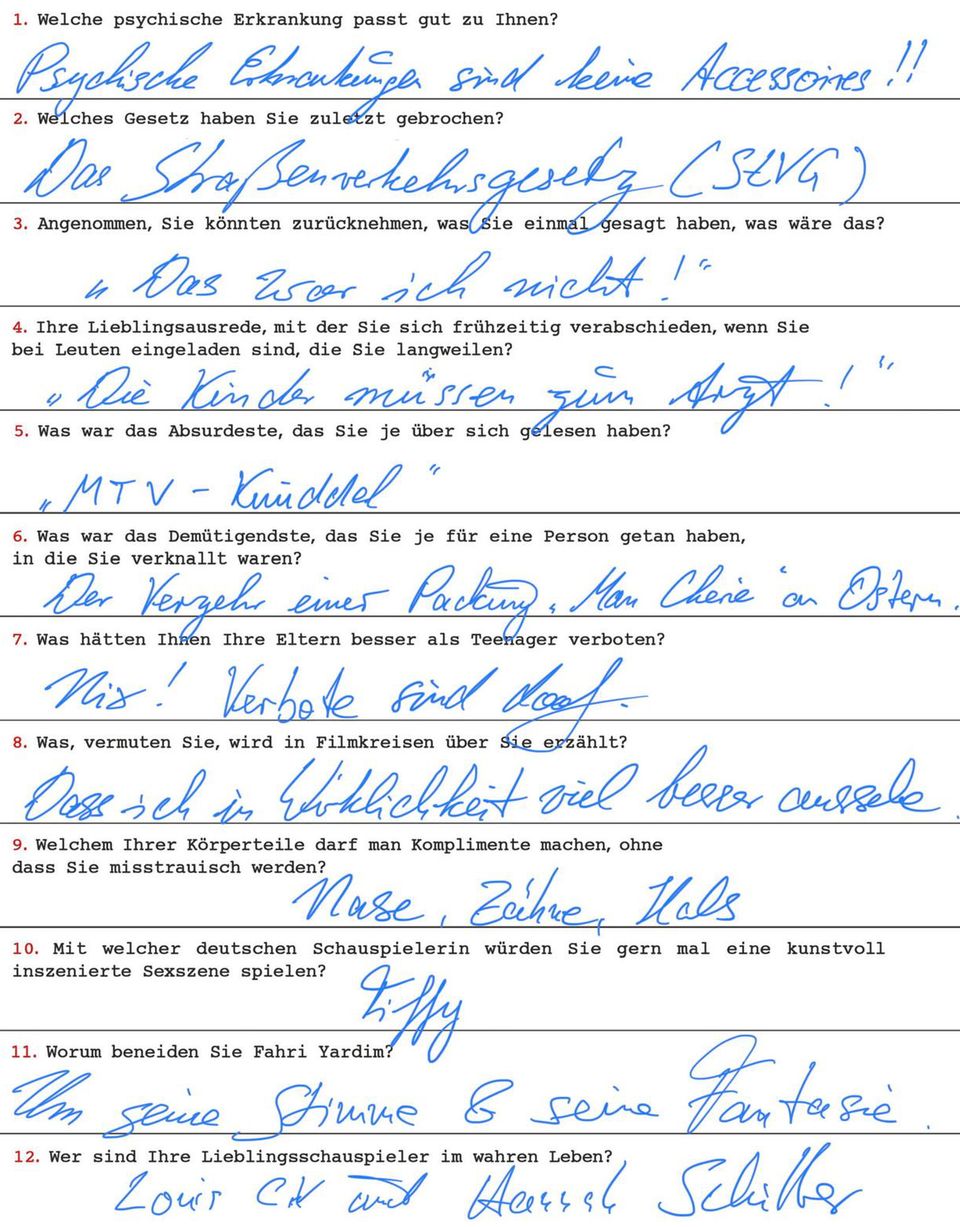 1. Welche psychische Erkrankung passt gut zu Ihnen?
Psychische Erkrankungen sind keine Accessoires!!
2. Welches Gesetz haben Sie zuletzt gebrochen?
Das Straßenverkehrsgesetz (StVG)
3. Angenommen, Sie könnten zurücknehmen, was Sie einmal gesagt haben, was wäre das?
„Das war ich nicht!“
4. Ihre Lieblingsausrede, mit der Sie sich frühzeitig verabschieden, wenn Sie
bei Leuten eingeladen sind, die Sie langweilen?
„Die Kinder müssen zum Arzt!“
5. Was war das Absurdeste, das Sie je über sich gelesen haben?
„MTV-Knuddel“
6. Was war das Demütigendste, das Sie je für eine Person getan haben,
in die Sie verknallt waren?
Der Verzehr einer Packung „Mon Chérie“ an Ostern.
7. Was hätten Ihnen Ihre Eltern besser als Teenager verboten?
Nix! Verbote sind doof.
8. Was, vermuten Sie, wird in Filmkreisen über Sie erzählt?
Dass ich in Wirklichkeit viel besser aussehe.
9. Welchem Ihrer Körperteile darf man Komplimente machen, ohne
dass Sie misstrauisch werden?
Nase, Zähne, Hals
10. Mit welcher deutschen Schauspielerin würden Sie gern mal eine kunstvoll
inszenierte Sexszene spielen?
Tiffy
11. Worum beneiden Sie Fahri Yardim?
Um seine Stimme & seine Fantasie.
12. Wer sind Ihre Lieblingsschauspieler im wahren Leben?
Louis CK und Hannah Schiller